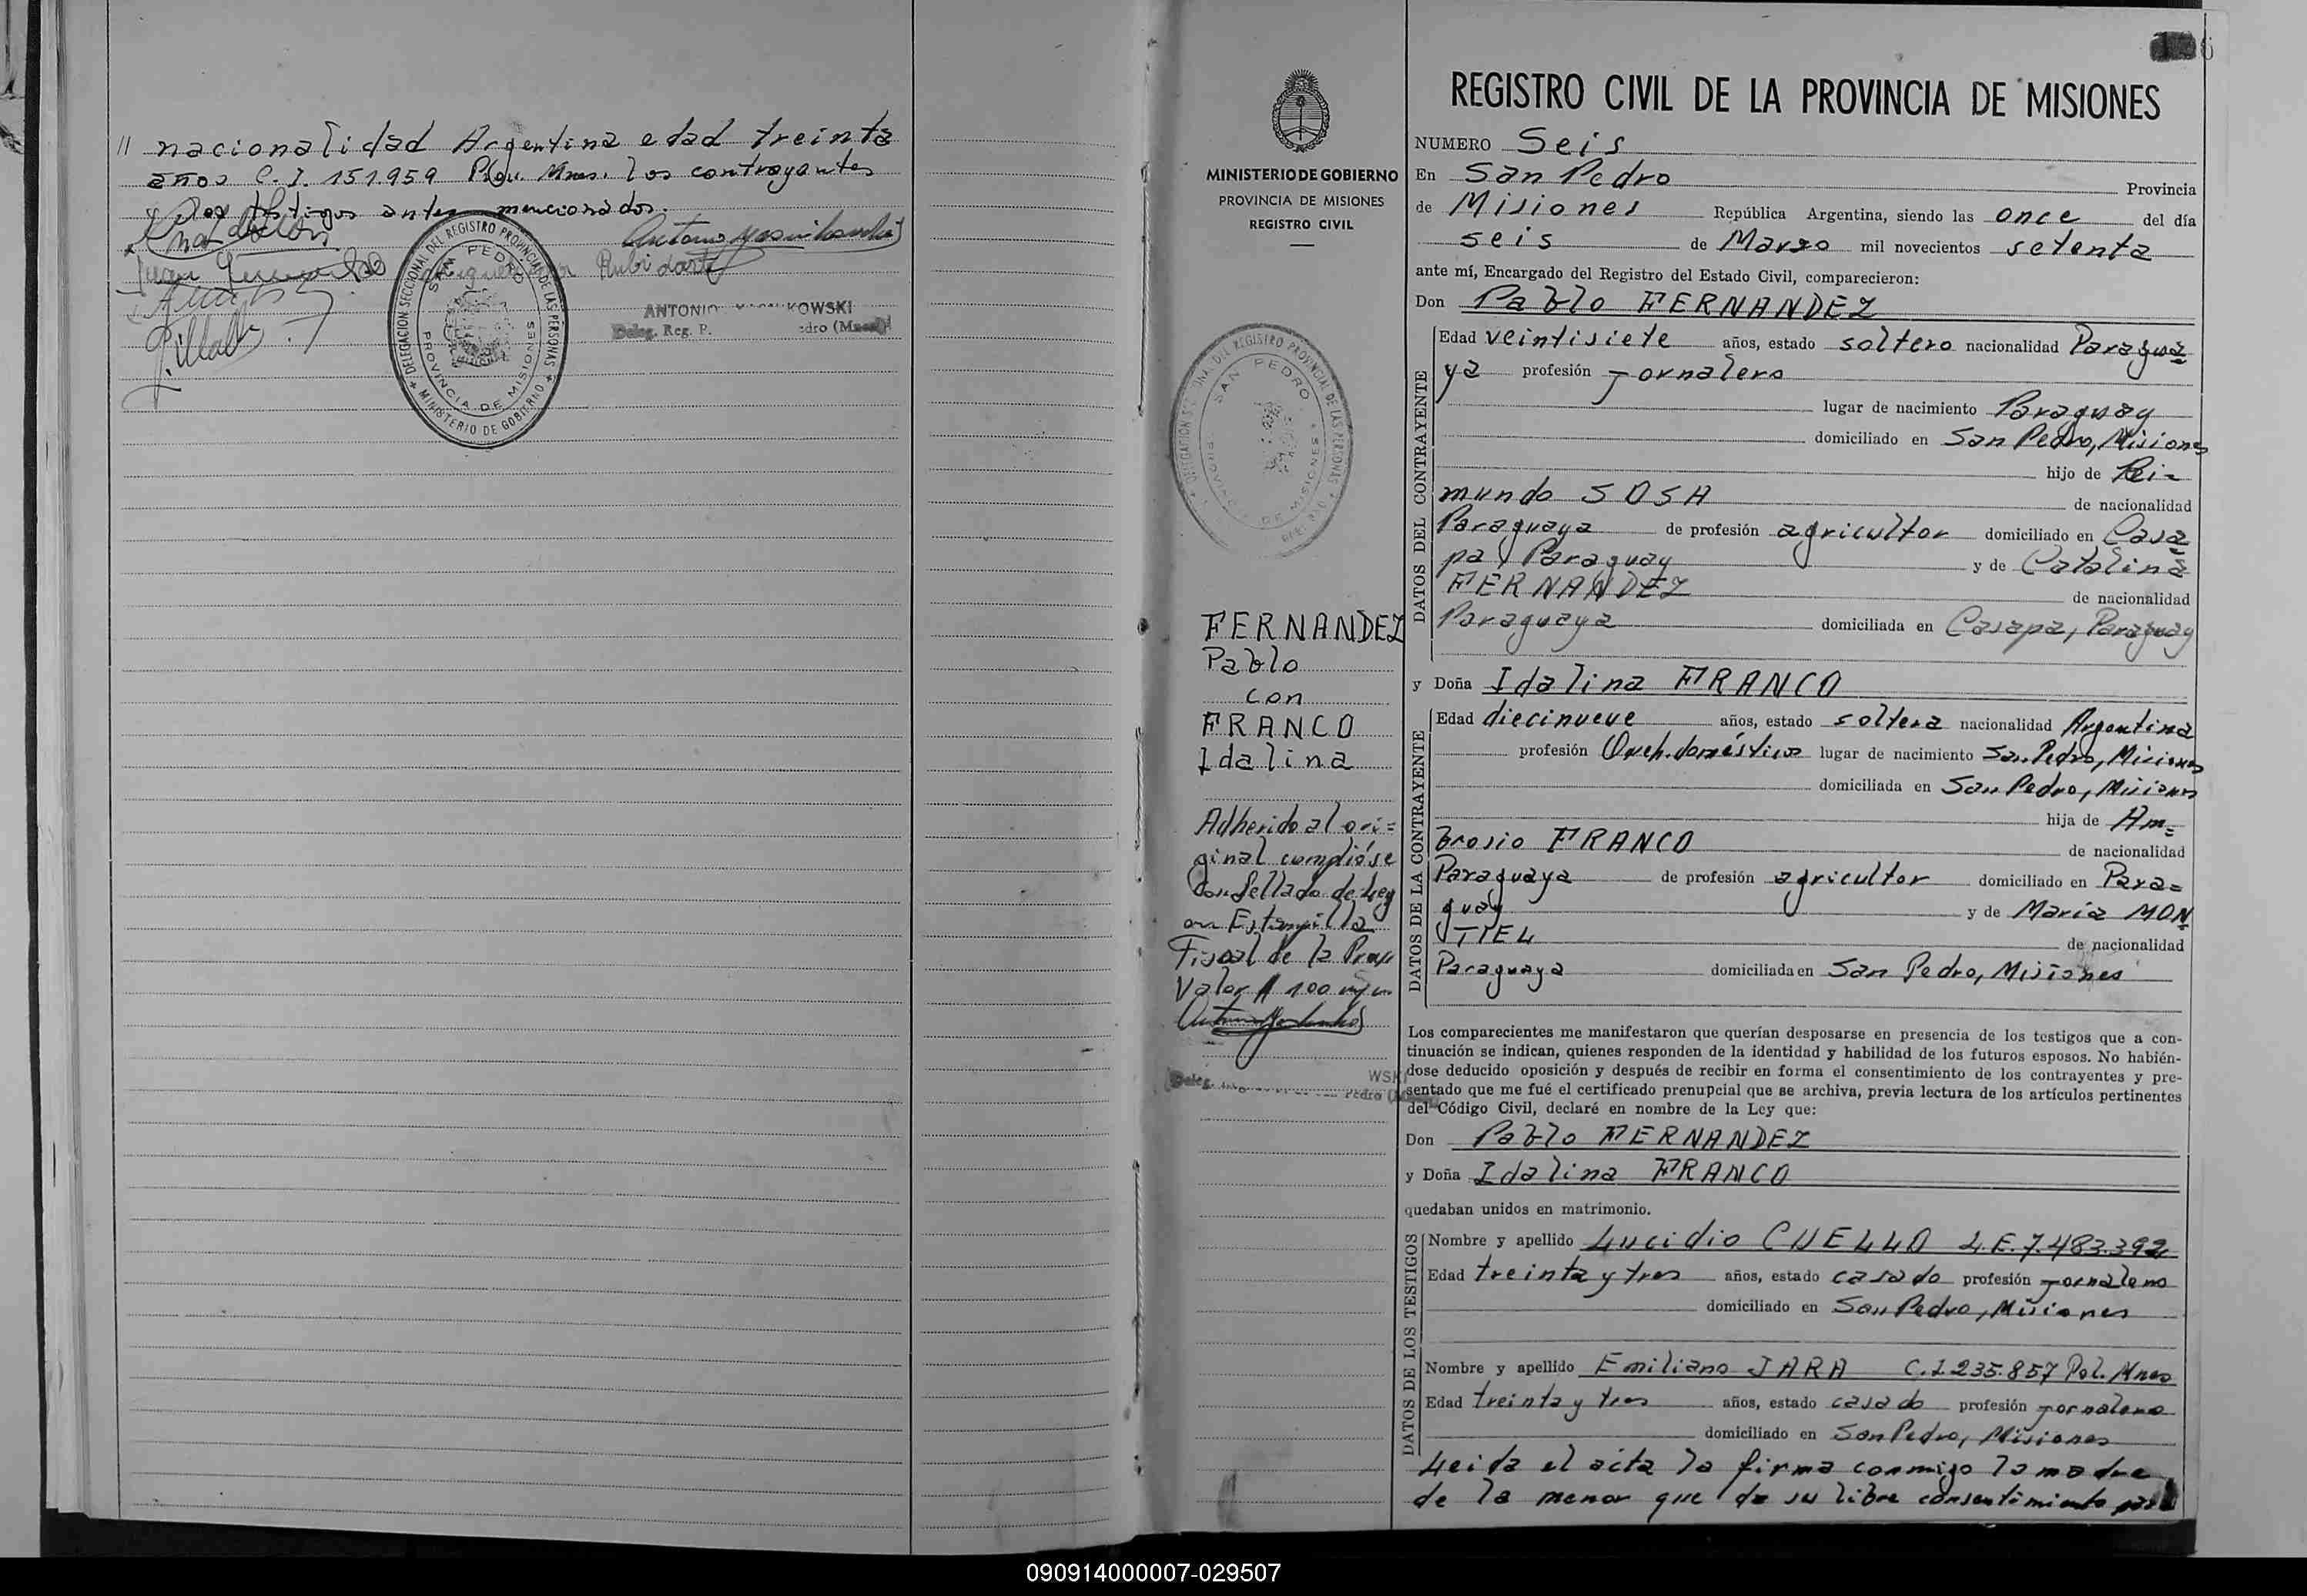 // nacionalidad Argentina edad treinta
años C.I. 151.959 Mnes. los contrayentes
y los testigos antes mencionados.
DELEGACION SECCIONAL DEL REGISTRO PROVINCIAL DE LAS PERSONAS
SAN PEDRO
PROVINCIA DE MISIONES
MINISTERIO DE GOBIERNO
ANTONIO KOWSKI
Deleg. Reg. P. dro (Mnes)
MINISTERIO DE GOBIERNO
PROVINCIA DE MISIONES
REGISTRO CIVIL
SAN PEDRO
FERNANDEZ
Pablo
con
FRANCO
Idalina
Adherido al ori=
ginal cumpliose
con Sellado de Ley
en Estampilla
Fiscal de la Prov.
Valor $ 100 m/n
WSKI
Deleg. Pedro
REGISTRO CIVIL DE LA PROVINCIA DE MISIONES
NUMERO Seis
En San Pedro Provincia
de Misiones República Argentina, siendo las once del día
seis de Marzo mil novecientos setenta
ante mí, Encargado del Registro del Estado Civil, comparecieron:
Don Pablo FERNANDEZ
DATOS DEL CONTRAYENTE
Edad veintisiete años, estado soltero nacionalidad Paragua=
ya profesión Jornalero
lugar de nacimiento Paraguay
domiciliado en San Pedro, Misiones
hijo de Rei=
mundo SOSA de nacionalidad
Paraguaya de profesión agricultor domiciliado en Casa=
pa, Paraguay y de Catalina
FERNANDEZ de nacionalidad
Paraguaya domiciliada en Casapa, Paraguay
y Doña Idalina FRANCO
DATOS DE LA CONTRAYENTE
Edad diecinueve años, estado soltera nacionalidad Argentina
profesión Queh. domésticos lugar de nacimiento San Pedro, Misiones
domiciliada en San Pedro, Misiones
hija de Am=
brosio FRANCO de nacionalidad
Paraguaya de profesión agricultor domiciliado en Para=
guay y de Maria MON=
TIEL de nacionalidad
Paraguaya domiciliada en San Pedro, Misiones
Los comparecientes me manifestaron que querían desposarse en presencia de los testigos que a con-
tinuación se indican, quienes responden de la identidad y habilidad de los futuros esposos. No habién-
dose deducido oposición y después de recibir en forma el consentimiento de los contrayentes y pre-
sentado que me fué el certificado prenupcial que se archiva, previa lectura de los artículos pertinentes
del Código Civil, declaré en nombre de la Ley que:
Don Pablo FERNANDEZ
y Doña Idalina FRANCO
quedaban unidos en matrimonio.
DATOS DE LOS TESTIGOS
Nombre y apellido Lucidio CUELLO L.E. 7.483.392
Edad treinta y tres años, estado casado profesión jornalero
domiciliado en San Pedro, Misiones
Nombre y apellido Emiliano JARA C.I. 235.857 Pol. Mnes
Edad treinta y tres años, estado casado profesión jornalero
domiciliado en San Pedro, Misiones
Leida el acta la firma conmigo la madre
de la menor que da su libre consentimiento
090914000007-029507